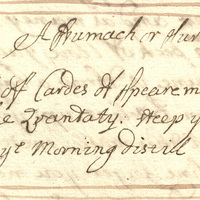 A Stumach or sur
off Cardes of speare m
e Quantaty. steep y
yᵉ Morning distill